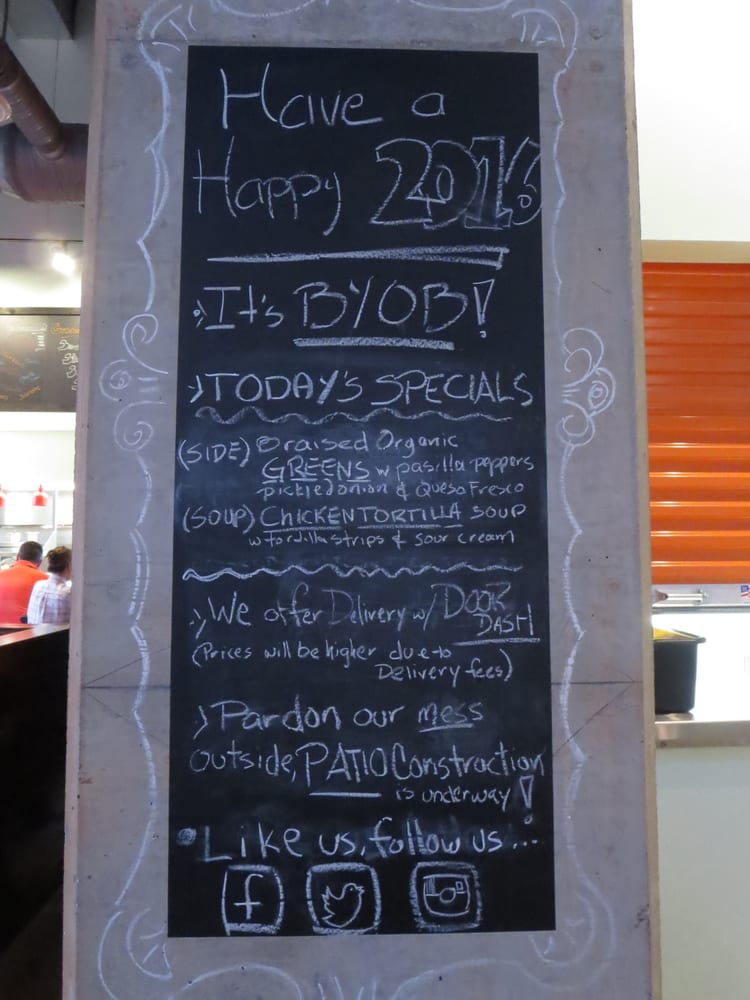 Have a
Happy 2016
It's BYOB!
TODAY'S SPECIALS
(SIDE) Braised Organic
GREENS w pasilla peppers
pickled onion & Queso Fresco
(SOUP) CHICKEN TORTILLA SOUP
w tortilla strips & sour cream
We offer Delivery w/ DOOR
DASH
(Prices will be higher due to
Delivery fees)
Pardon our mess
outside, PATIO Construction
is underway!
Like us, follow us...
f